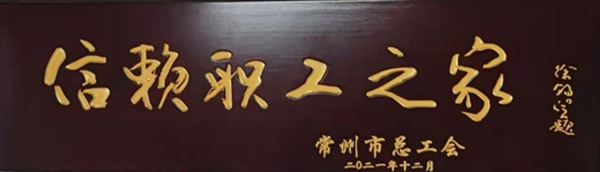 信赖职工之家
常州市总工会
二〇二一年十二月